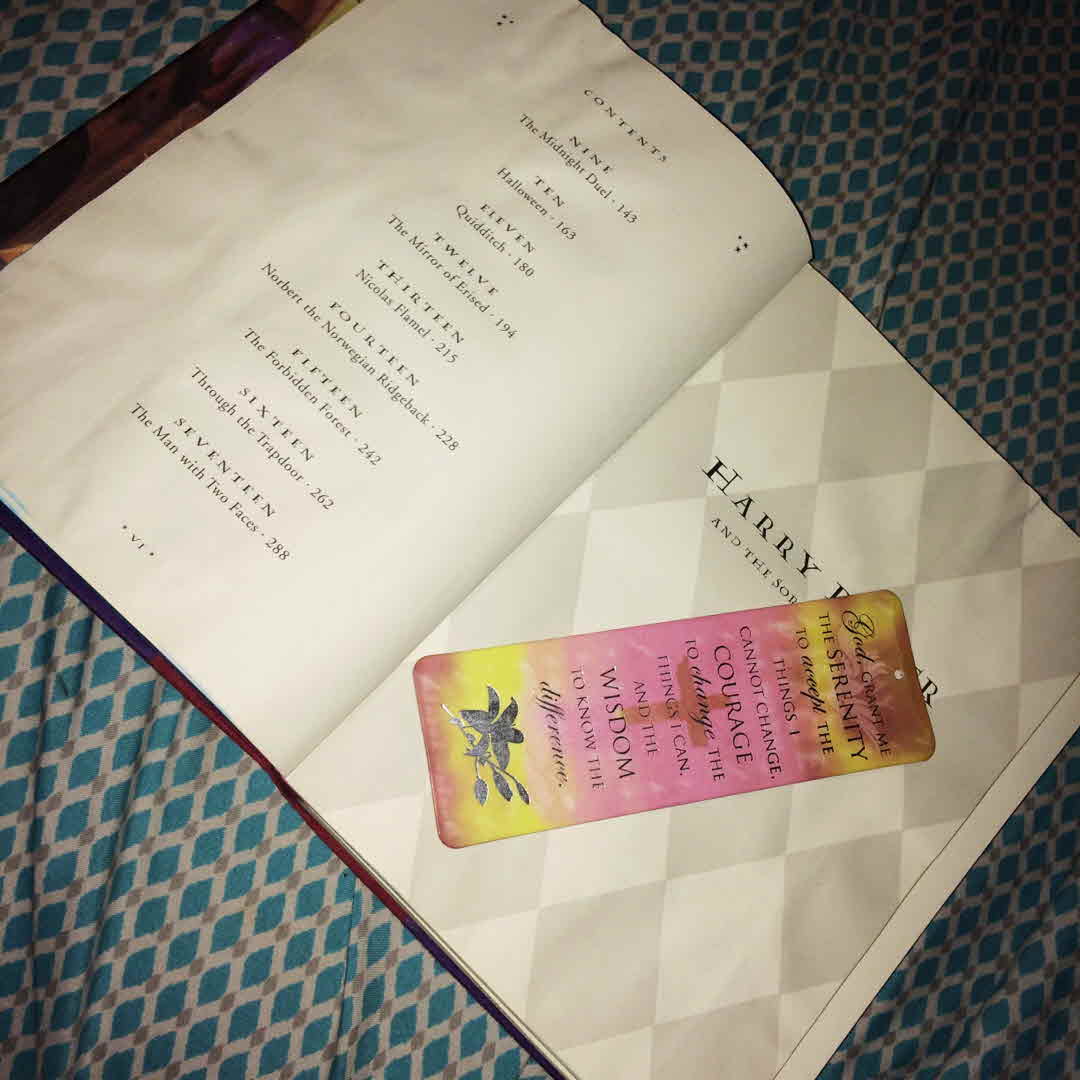 CONTENTS
NINE
The Midnight Duel · 143
TEN
Halloween · 163
ELEVEN
Quidditch · 180
TWELVE
The Mirror of Erised · 194
THIRTEEN
Nicolas Flamel · 215
FOURTEEN
Norbert the Norwegian Ridgeback · 228
FIFTEEN
The Forbidden Forest · 242
SIXTEEN
Through the Trapdoor · 262
SEVENTEEN
The Man with Two Faces · 288
• VI •
HARRY
AND THE
God, GRANT ME
THE SERENITY
TO accept THE
THINGS I
CANNOT CHANGE,
COURAGE
TO change THE
THINGS I CAN,
AND THE
WISDOM
TO KNOW THE
difference.